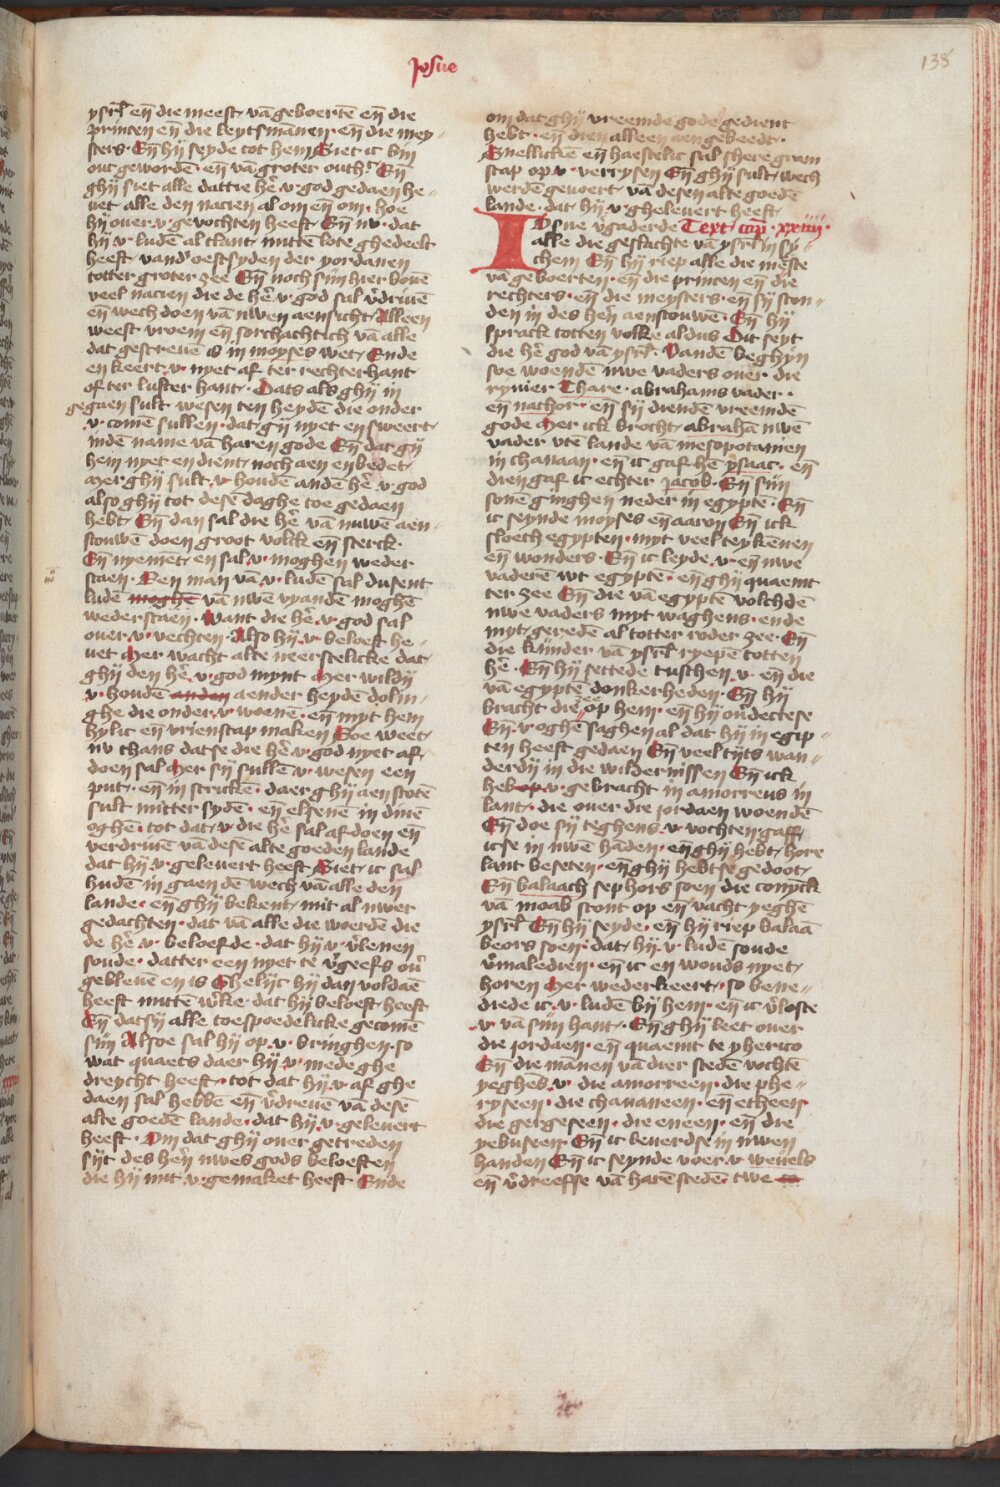 Josue
138
ysrl̄ en̄ die meest vā geboertē en̄ die
princen en̄ die leytsmānen · en̄ die mey-
sters · En̄ hij seyde tot hem Siet ic bin
out gewordē · en̄ vā groter outh̄t En̄
ghij siet alle dattie hē v god gedaen he-
uet alle den nacien al om en̄ om · hoe
hij ouer · v · gevochten heeft En̄ nv · dat
hij v · ludē al tlant mittē lote ghedeelt
heeft vand oestsyden der yordanen
totter groter zee En̄ noch sijn hier bouē
veel nacien die de hē v god sal v̄driuē
en̄ wech doen vā uwen aensicht Alleen
weest vroem en̄ sorchachtich vā alle
dat gescreuē is in moyses wet Ende
en keert v nyet af ter rechterhant
of ter lufter hant · Dats als ghij in
gegaen sult wesen ten heydē die onder
v · comē sullen · dat gij nyet en sweert
indē name vā haren gode En̄ dat gij
hem nyet en dient noch aen enbedet
mer ghij sult v houdē andē hē v god
also ghij tot desē daghe toe gedaen
hebt En̄ dan sal die hē vā nuwē aen-
scouwē doen groot volck en̄ sterck ·
En̄ nyemēt en sal v · moghen weder
staen · Een man vā v · ludē sal dusent
ludē moghē vā uwē vyandē moghē
wederstaen · Want die hē v god sal
ouer v vechten · Also hij v beloeft he-
uet Mer wacht alte neerstelicke dat
ghij den hē v god mynt Mer wildij
v · houdē anden aender heydē dolin-
ghe die onder v woenē · en̄ myt hem
hylic en̄ vrienscap maken Soe weet
nv thans datse die hē v god nyet af
doen sal Mer sij sullē v · wesen een
put · en̄ in stricken · daer ghij aen stotē
sult mitter sydē · en̄ elsene in dinē
oghē · tot dat v die hē sal af doen en̄
verdriuē vā desē alte goeden lande
dat hij v geleuert heeft Siet ic sal
hudē in gaen dē wech vā alle den
lande · en̄ ghij bekent mit al uwer
gedachten · dat vā alle die woerdē die
de hē v · beloefde · dat hij v v̄lenen
soude · datter een nyet te v̄geefs ou̅
gebleuē en is Ghelijc hij dan voldaē
heeft mittē w̄ke · dat hij beloeft heeft
En̄ datsij alle toespoedelicke gecomē
sijn Alsoe sal hij op v · bringhen · so
wat quaets daer hij v mede ghe
dreycht heeft · tot dat hij v af ghe
daen sal hebbē en̄ v̄dreuē vā desē
alte goedē lande · dat hij v geleuert
heeft · Om dat ghij ouer getreden
sijt des hēn uwes gods beloeften
die hij mit v gemaket heeft Ende
om dat ghij vreemde gode gedient
hebt · en̄ dien alleen aen gebeedt ·
Snellickē en̄ haestelic sal shere gram
scap op v · verrysen En̄ ghij sult wech
werdē geuoert vā desen alte goedē
lande · dat hij v gheleuert heeft
Iosue v̄gaderde Text cap̄ · xxiiij ·
alle die geslachte vā ysrl̄ in sy-
chem En̄ hij riep alle die meste
vā geboerten · en̄ die princen en̄ die
rechters · en̄ die meysters · en̄ sij ston-
den in des hēn aenscouwē · En̄ hij
sprack totten volke · aldus Dit seyt
die hē god vā ysrl̄ · Vandē beghyn
soe woendē uwe vaders ouer die
ryuier Thare · abrahams vader ·
en̄ nathor · en̄ sij diendē vreemdē
gode Mer ick brocht abrahā uwē
vader vtē lande vā mesopotamien
in chanaan · en̄ ic gaf hē ysaac · en̄
dien gaf ic echter Jacob · En̄ sijn
sonē ginghen neder in egyptē · En̄
ic seynde moyses en̄ aaron En̄ ick
sloech egypten · myt veel teykenen
en̄ wonders · En̄ ic leyde v · en̄ uwe
vaderē wt egypte · en̄ ghij quaemt
ter zee En̄ die vā egyptē volchdē
uwe vaders myt waghens · ende
myt geredē al totter roder zee · En̄
die kynder vā ysrl̄ ryepē totten
hē · En̄ hij settede tusschen v · en̄ die
vā egyptē donkerheden · En̄ hij
bracht die zee op hem · en̄ hij ou̅dectese
En̄ v oghē saghen al dat hij in egip-
ten heeft gedaen En̄ veel tijts wan-
derdij in die wildernissen En̄ ick
heb v · gebracht in amorreus in
lant · die ouer die jordaen woendē
En̄ doe sij teghens v vochten gaff
icse in uwē hādē · en̄ ghij hebt hore
lant beseten · en̄ ghij hebtse gedoot
En̄ balaach sephors soen die conyck
vā moab stont op en̄ vacht yeghē
ysrl̄ En̄ hij seyde · en̄ hij riep balaā
beors soen · dat hij v ludē soude
v̄maledien · en̄ ic en wouds nyet
horen Mer wederkeert · so bene-
diede ic v ludē bij hem · en̄ ic v̄loste
v · vā sijn hant · En̄ ghij leet ouer
die jordaen · en̄ quaemt te yherico
En̄ die mānen vā dier stedē vochtē
yeghēs v · die amorreen · die phe-
ryseen · die chananeen · en̄ etheen
die gergeseen · die eneen · en̄ die
yebuseen En̄ ic leuerdse in uwen
handen En̄ ic seynde voer v weuels
en̄ v̄dreeffse vā harē stedē twe